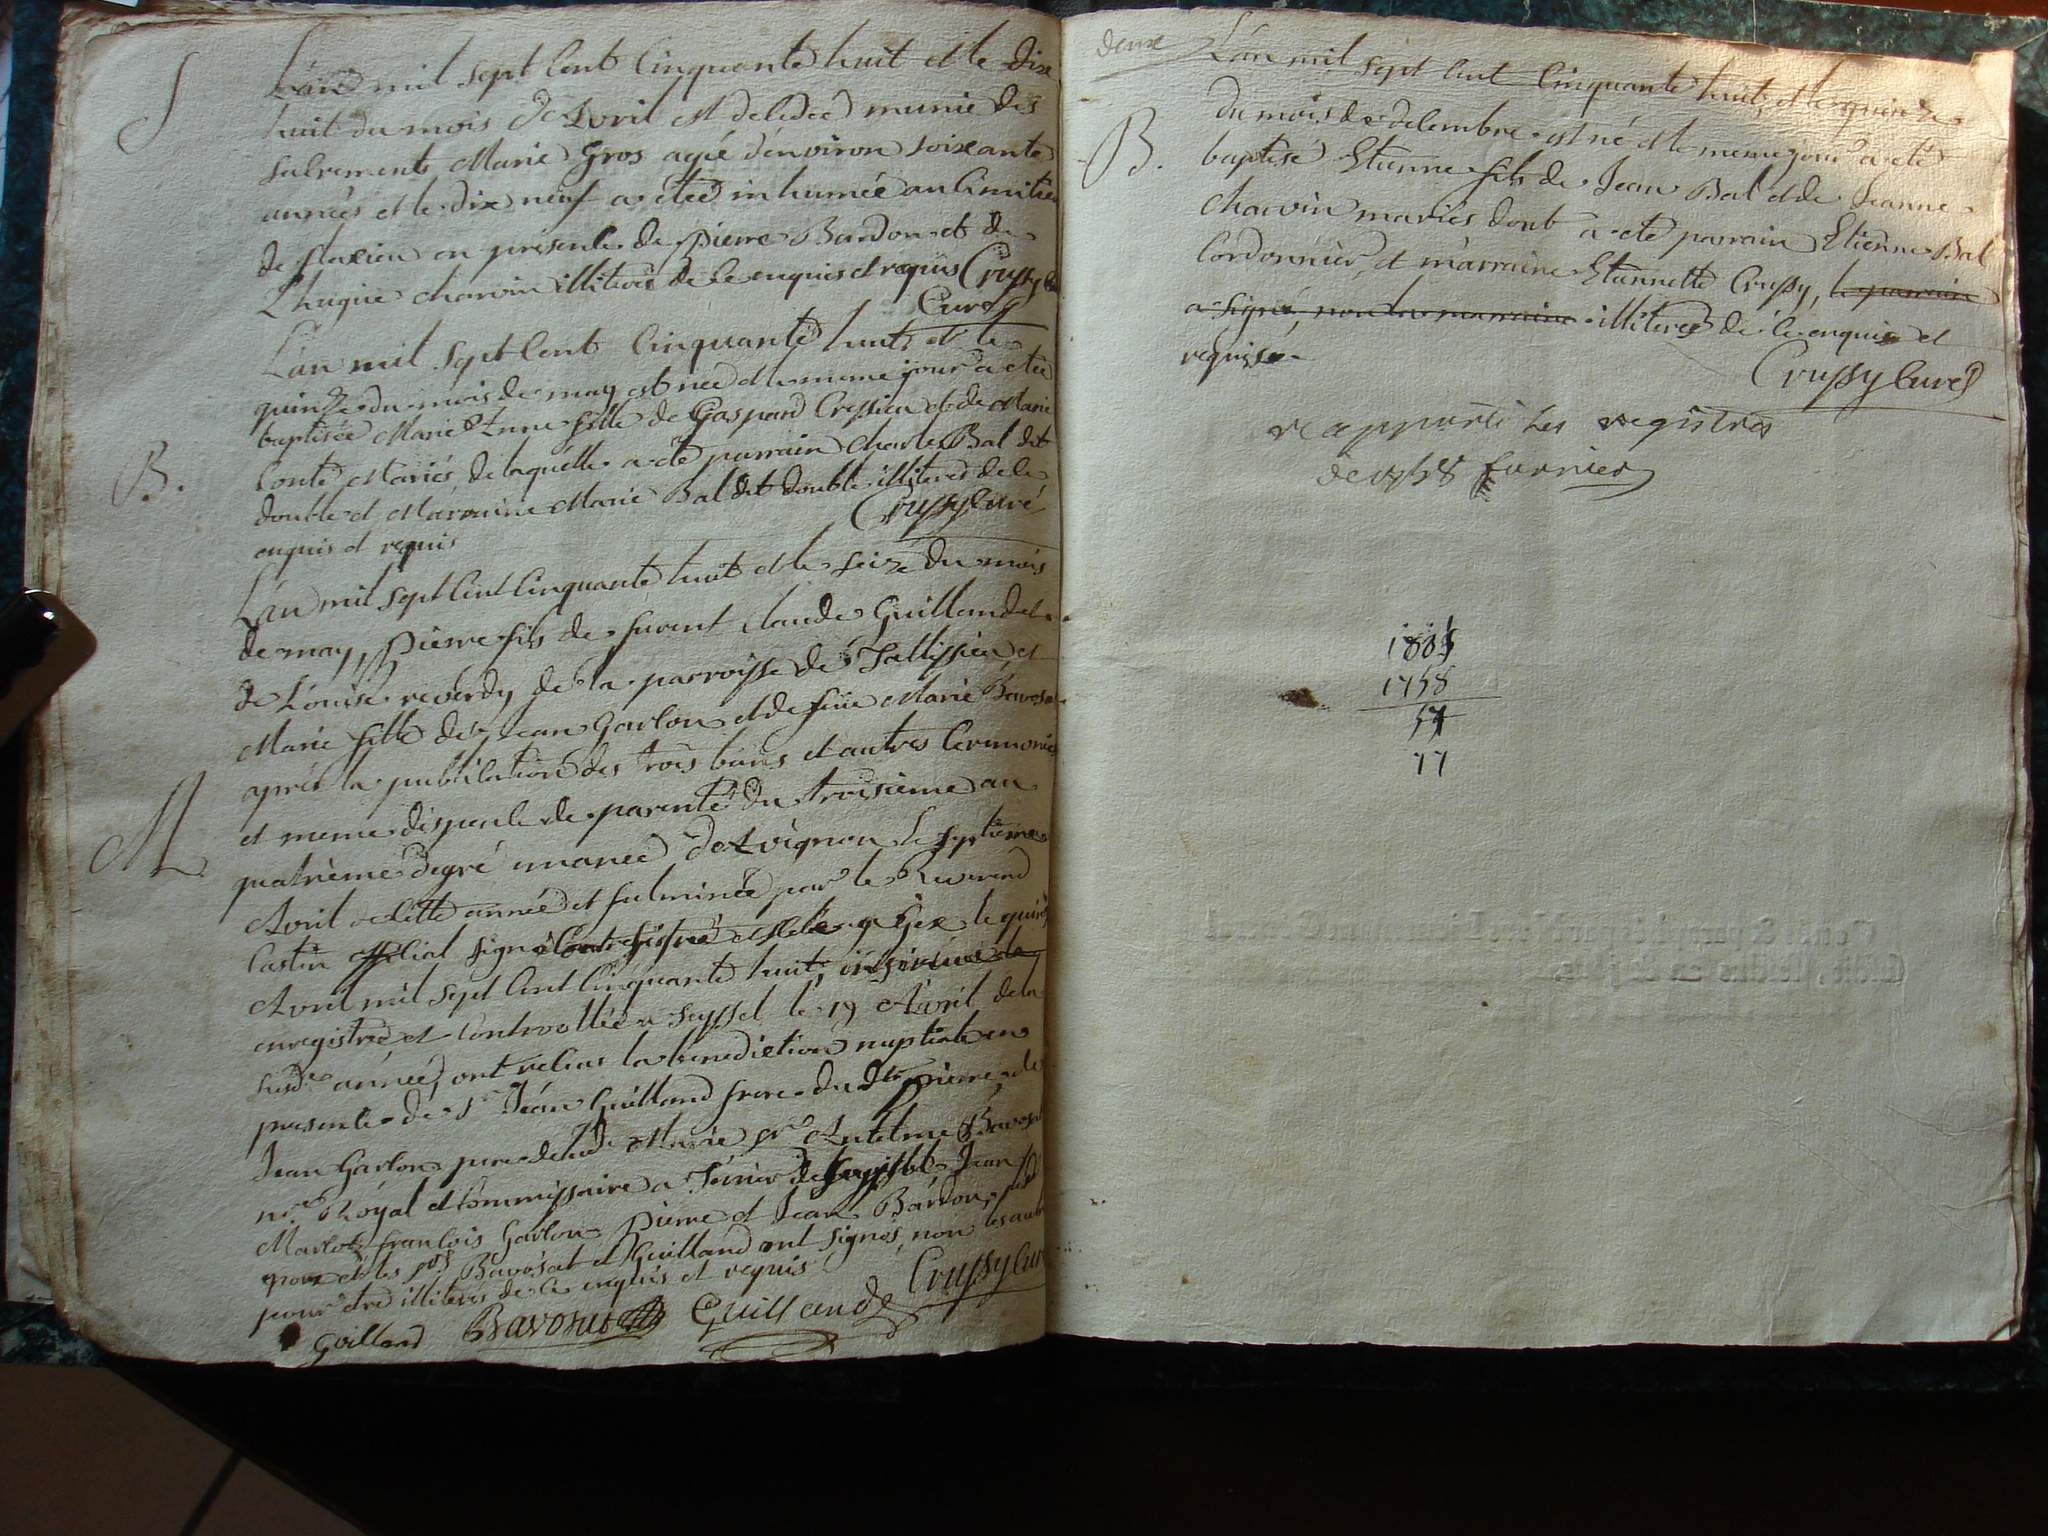 S
L'an mil sept cent cinquante huit et le dix
huit du mois d'Avril est decedeé munie des
sacrements Marie Gros ageé d'environ soixante
années et le dix neuf a eteé inhumée au cimitier
de flaxieu en présence de pierre Bardon et de
Thugue charvin illiterés de ce enquis et requis Crussy
Curé
B.
L'an mil sept cent cinquante huit et le
quinze du mois de may est neé et le meme jour a eteé
baptisée Marie Anne fille de Gaspard Cressieu et de Marie
Conte Mariés, de laquelle a eté parrain charles Bal dit
double et Marraine Marie Bal dit double illiterés de ce
enquis et requis
Crussy curé
M
L'an mil sept cent cinquante huit et le seize du mois
de may, pierre fils de furent claude Guilland et
de Louise reverdy de la parroisse de Tallissieu et
Marie fille de jean Garlon et de fuie Marie Bavosat
aprés la publication des trois bans et autres ceremonies
et meme dispence de parenté du troisieme au
quatrième degré emaneé d'Avignon le septieme
Avril de cette année et fulmineé par le Reverend
Castin official signé contresigné et a Gex le quinze
Avril mil sept cent cinquante huit, insinuée
enregistreé et controolleé a seyssel le 19 Avril de la
susde année, ont recus la benediction nuptiale en
presence de Sr Jean Guilland frere du dt pierre, de
Jean Garlon pere de lad. Marie, sr Antelme Bavosat
nre Royal et commissaire a Terrier de Jean
Marlot, francois Garlon, pierre et Jean Bardon,
les srs Bavosat et Guilland ont signés, non les autres
pour etre illiterés de ce enquis et requis
Crussy cur
Goilland Bavosat Guilland
deux
L'an mil sept cent cinquante huit, et le quinze
B.
du mois de decembre est né et le meme jour a eté
baptisé Etienne fils de Jean Bal et de Jeanne
charvin mariés dont a eté parrain Etienne Bal
Cordonnier, et marraine Etiennette Crussy, le parrain
a signé, non la marraine illiterés de ce enquis et
requis
Crussy curé
reapporté les registres
de 1758 furnier
1835
1758
57
77